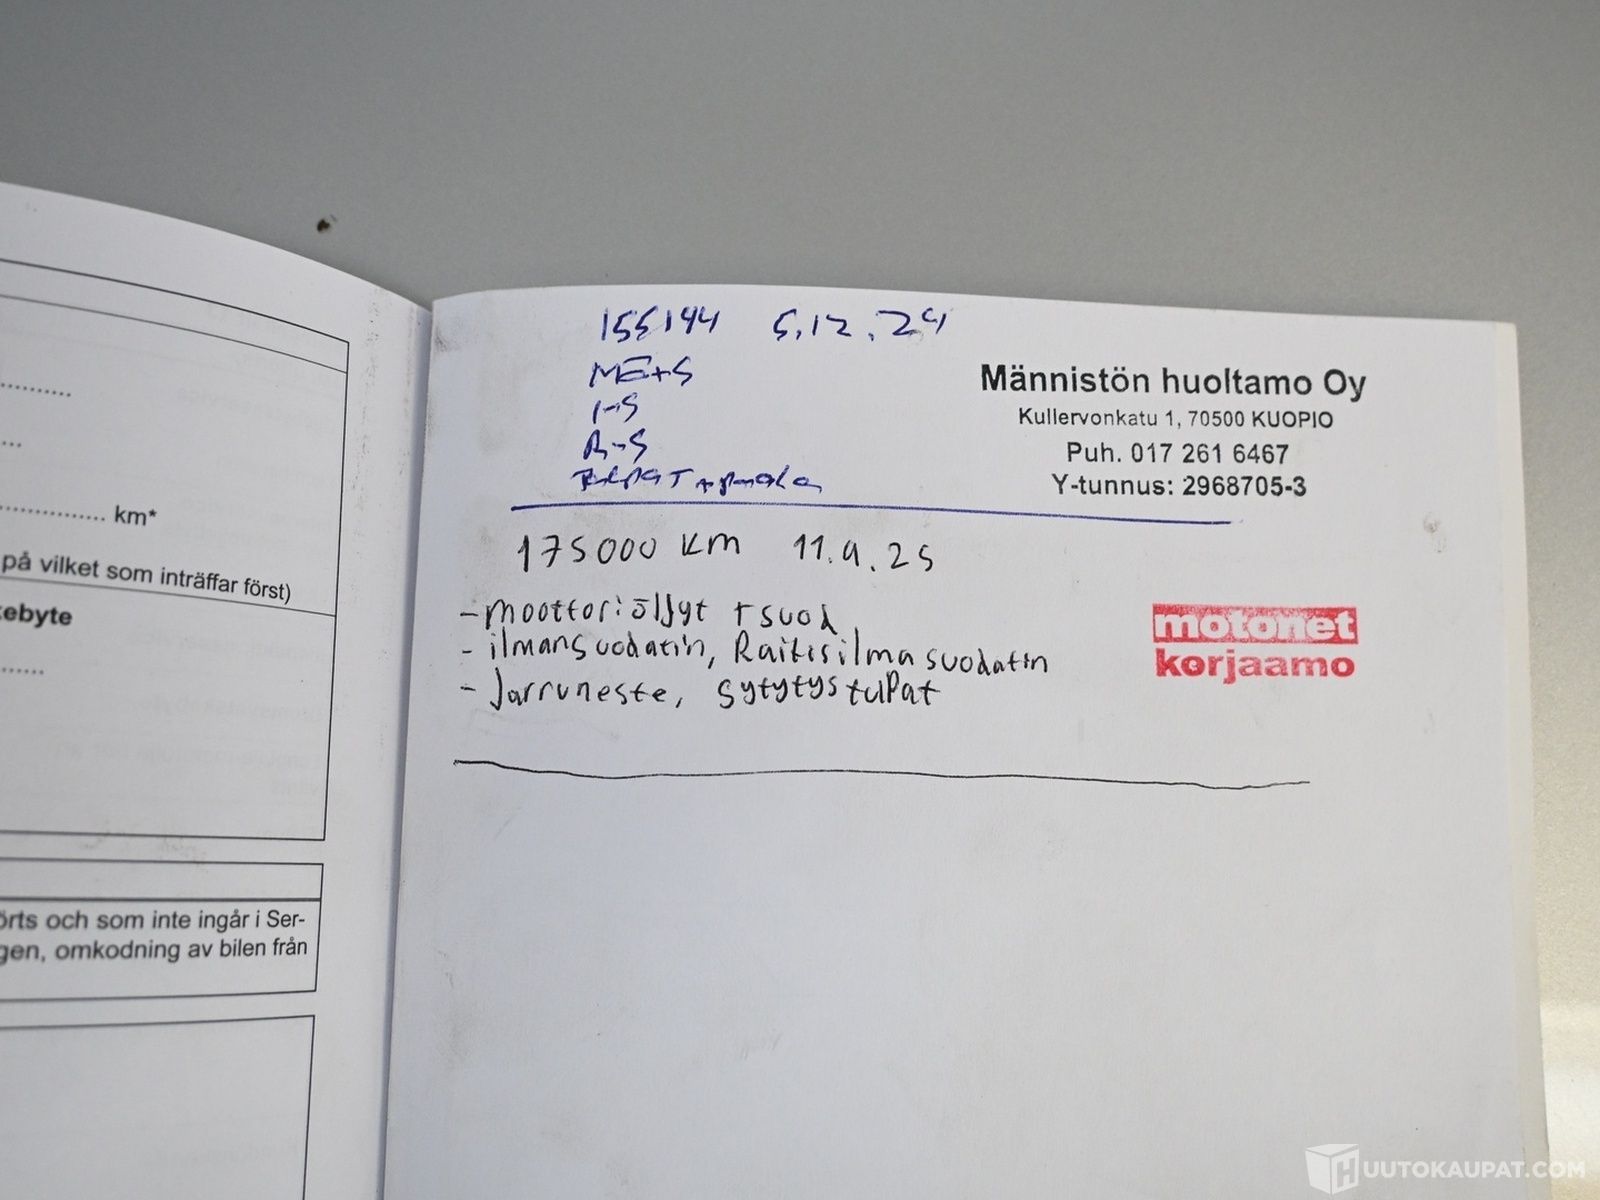 km*
på vilket som inträffar först)
ebyte
örts och som inte ingår i Ser-
gen, omkodning av bilen från
155144 5.12.24
ME+S
I-S
R-S
Männistön huoltamo Oy
Kullervonkatu 1, 70500 KUOPIO
Puh. 017 261 6467
Y-tunnus: 2968705-3
175000 km 11.9.25
-moottoriöljyt + suod
- ilmansuodatin, Raitisilmasuodatin
- Jarruneste, sytytystulpat
motonet
korjaamo
HUUTOKAUPAT.COM